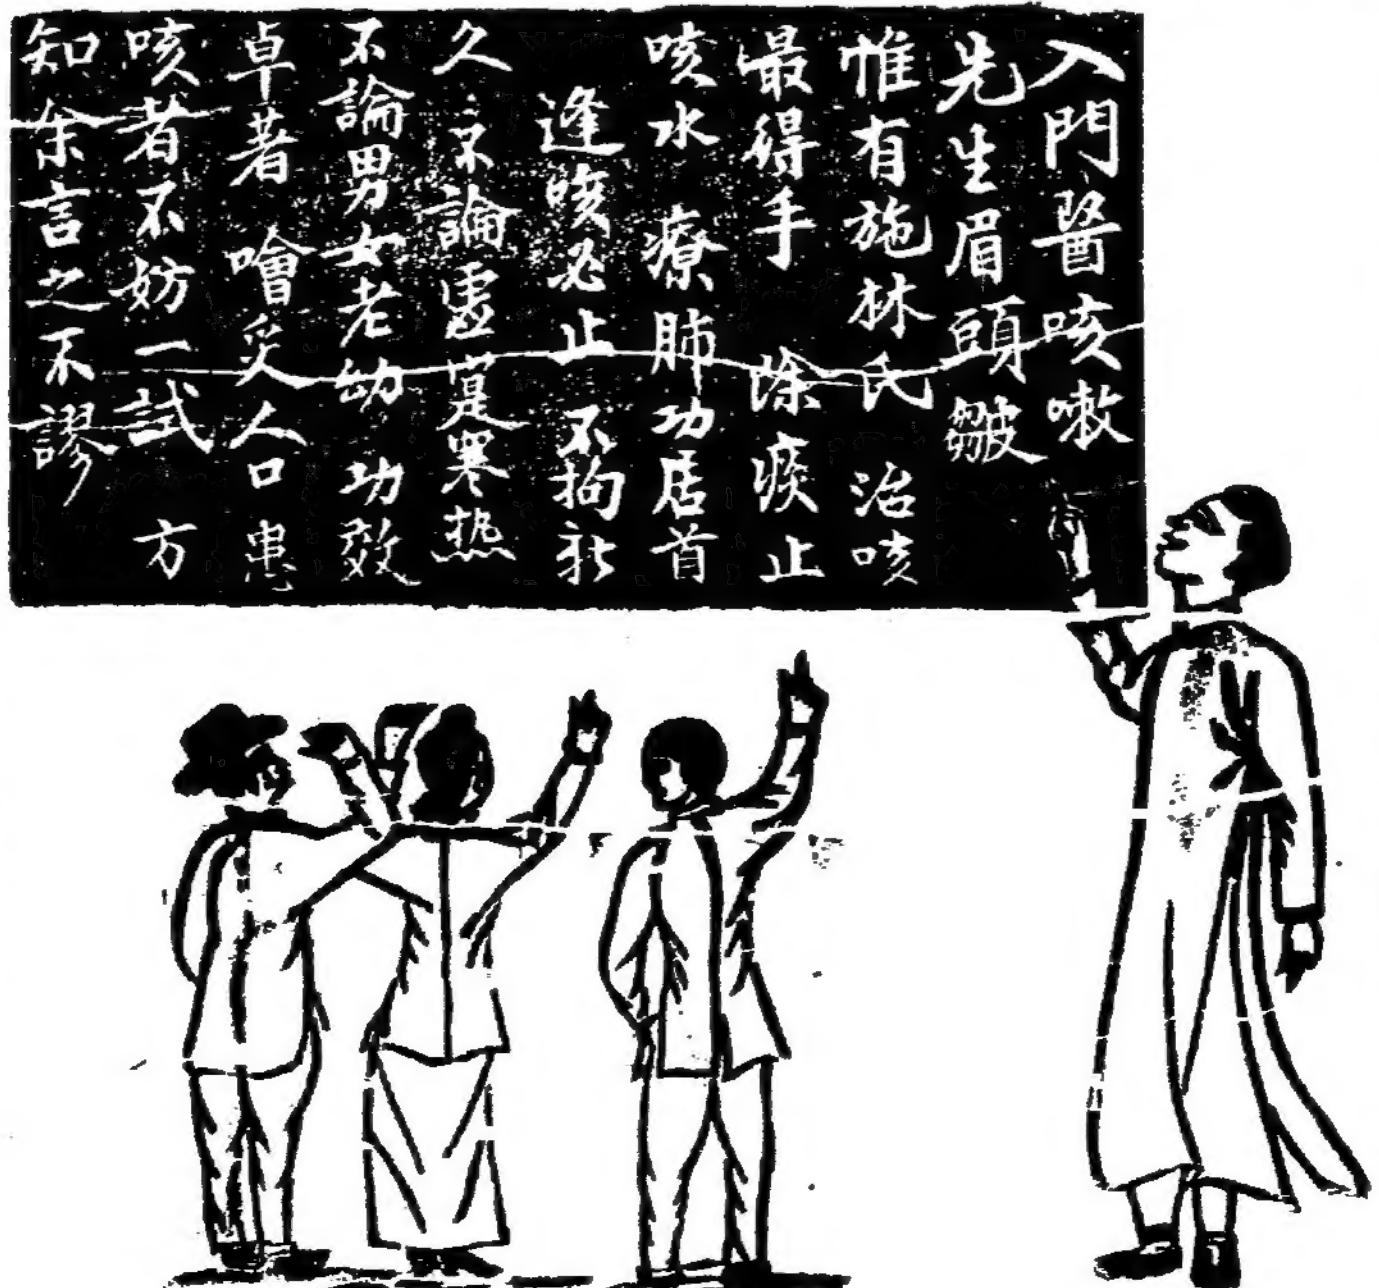 入門醫咳嗽
先生眉頭皺
惟有施林氏 治咳
最得手 除痰止
咳水 療肺功居首
逢咳必止 不拘新
久 不論虛寔寒热
不論男女老幼 功效
卓著 噲炙人口 患
咳者不妨一試 方
知余言之不謬